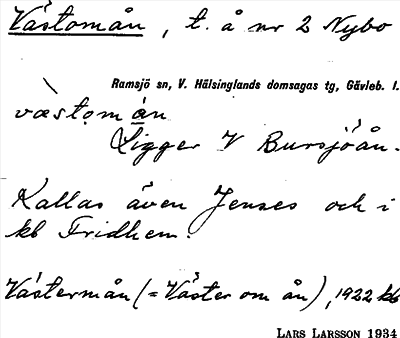 Västomån, t. å nr 2 Nybo
Ramsjö sn, V. Hälsinglands domsagas tg, Gävleb. l.
væstomån
Ligger V Bursjöån.
Kallas även Jenses och i
kb Fridhem.
Västermån (= Väster om ån), 1922 kb
LARS LARSSON 1934